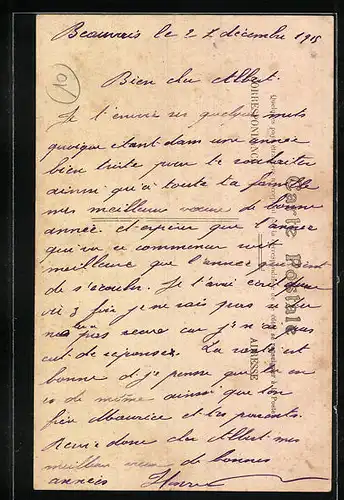 Beauvais le 22 décembre 1915
Bien cher Albert.
Je t'envoie ses quelques mots
quoique etant dans une année
bien triste pour te souhaiter
ainsi qu'à toute ta famille
mes meilleurs vœux de bonne
année et espérer que l'année
qui va ce commencer soit
meilleure que l'année qui vient
de s'écouler. Je t'avai écrit
3 fois je ne sais pas si tu
pas car je n'ai pas
eut de reponses. La santé est
bonne et je pense que tu en
es de même ainsi que ton
frère Maurice et tes parents.
Reçois donc cher Albert mes
meilleurs vœux de bonnes
années
10
Carte Postale
CORRESPONDANCE
ADRESSE